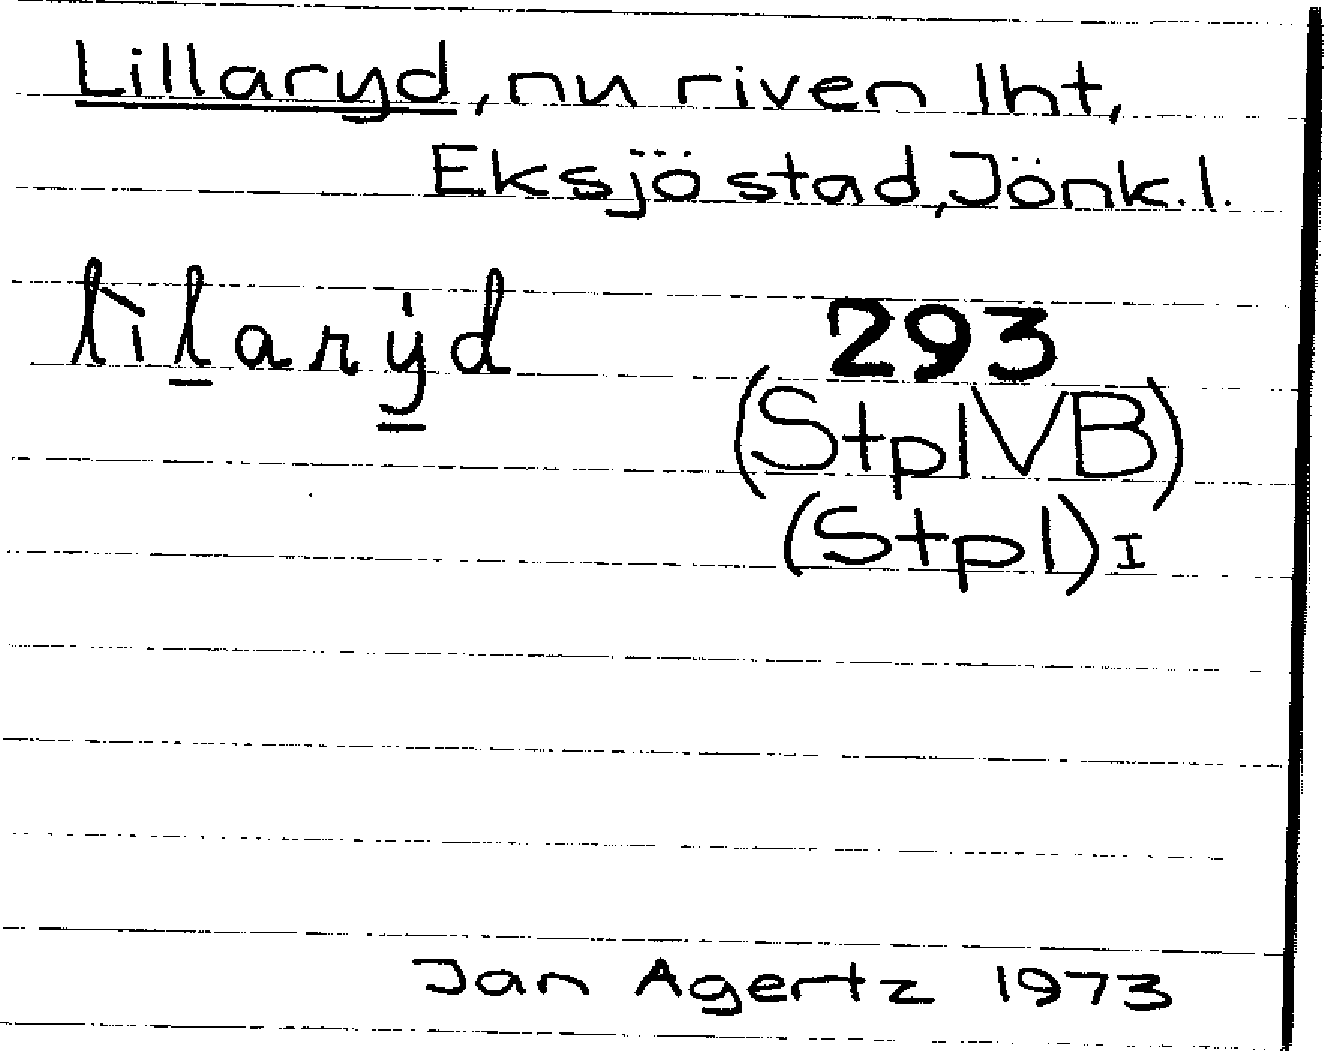 Lillaryd, nu riven lht,
Eksjö stad, Jönk. l.
lilarýd 293
(StplVB)
(Stpl) I
Jan Agertz 1973